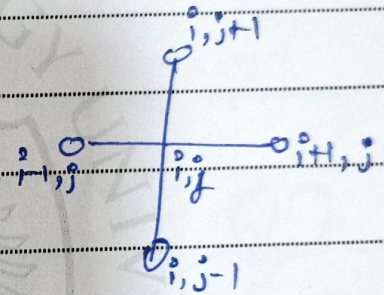 i, j+1
i-1, j
i, j
i+1, j
i, j-1